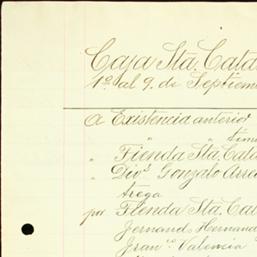 Caja Sta. Cata
1º al 9. de Septiem
a Existencia anterior
" " " tim
" Tienda Sta. Cata
" Divs Gonzalo Arre
trega
por Tienda Sta. Cat
Fernando Hernand
Franco Valencia